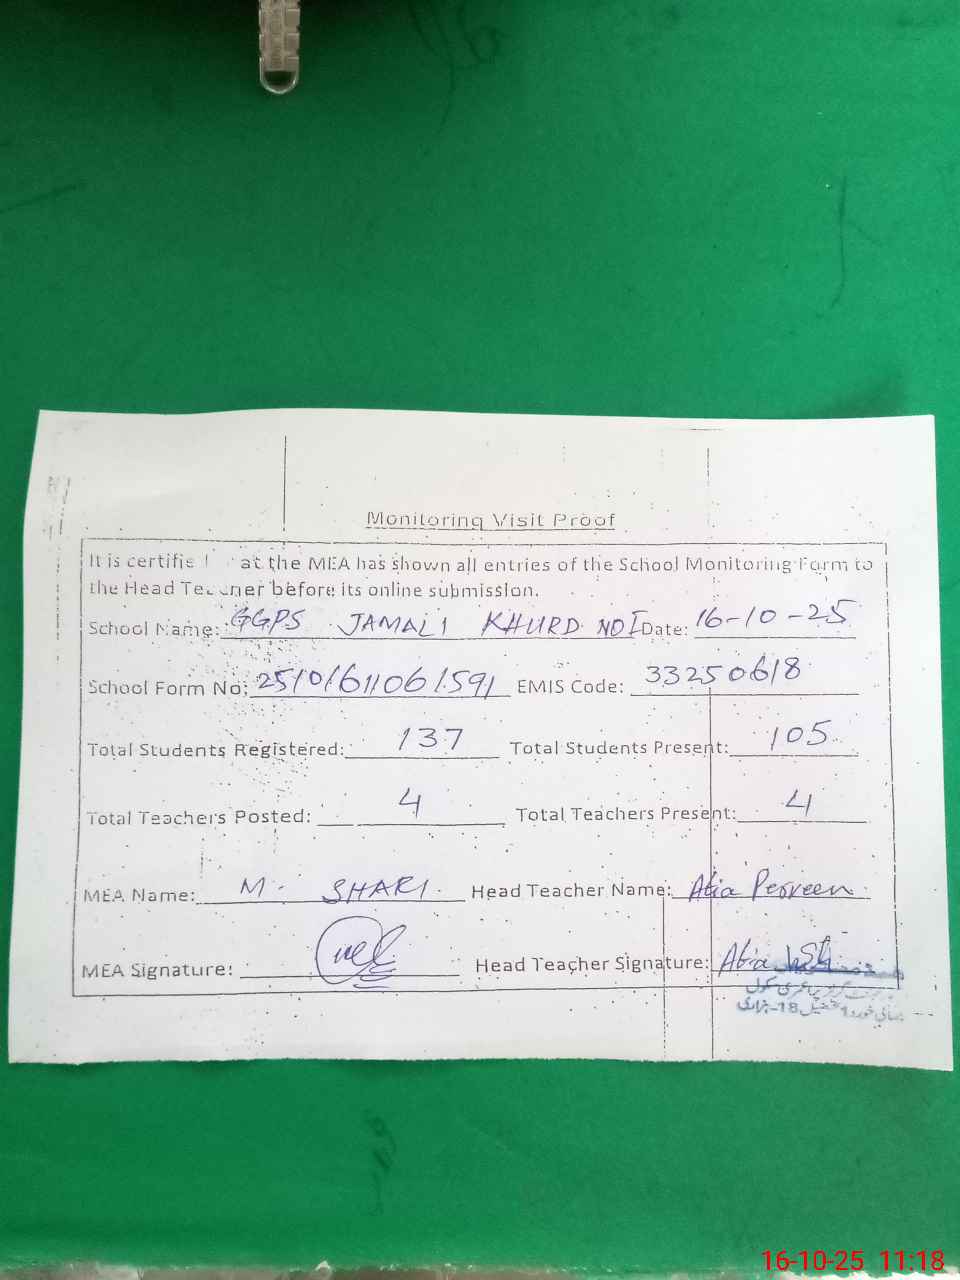 Monitoring Visit Proof
It is certifie at the MEA has shown all entries of the School Monitoring Form to
the Head Teacher before its online submission.
School Name: GGPS JAMALI KHURD NOI Date: 16-10-25
School Form No: EMIS Code: 33250618
Total Students Registered: 137 Total Students Present: 105
Total Teachers Posted: 4 Total Teachers Present: 4
MEA Name: M. SHARI Head Teacher Name: Atia Perveen
MEA Signature: Head Teacher Signature: Atia
16-10-25 11:18